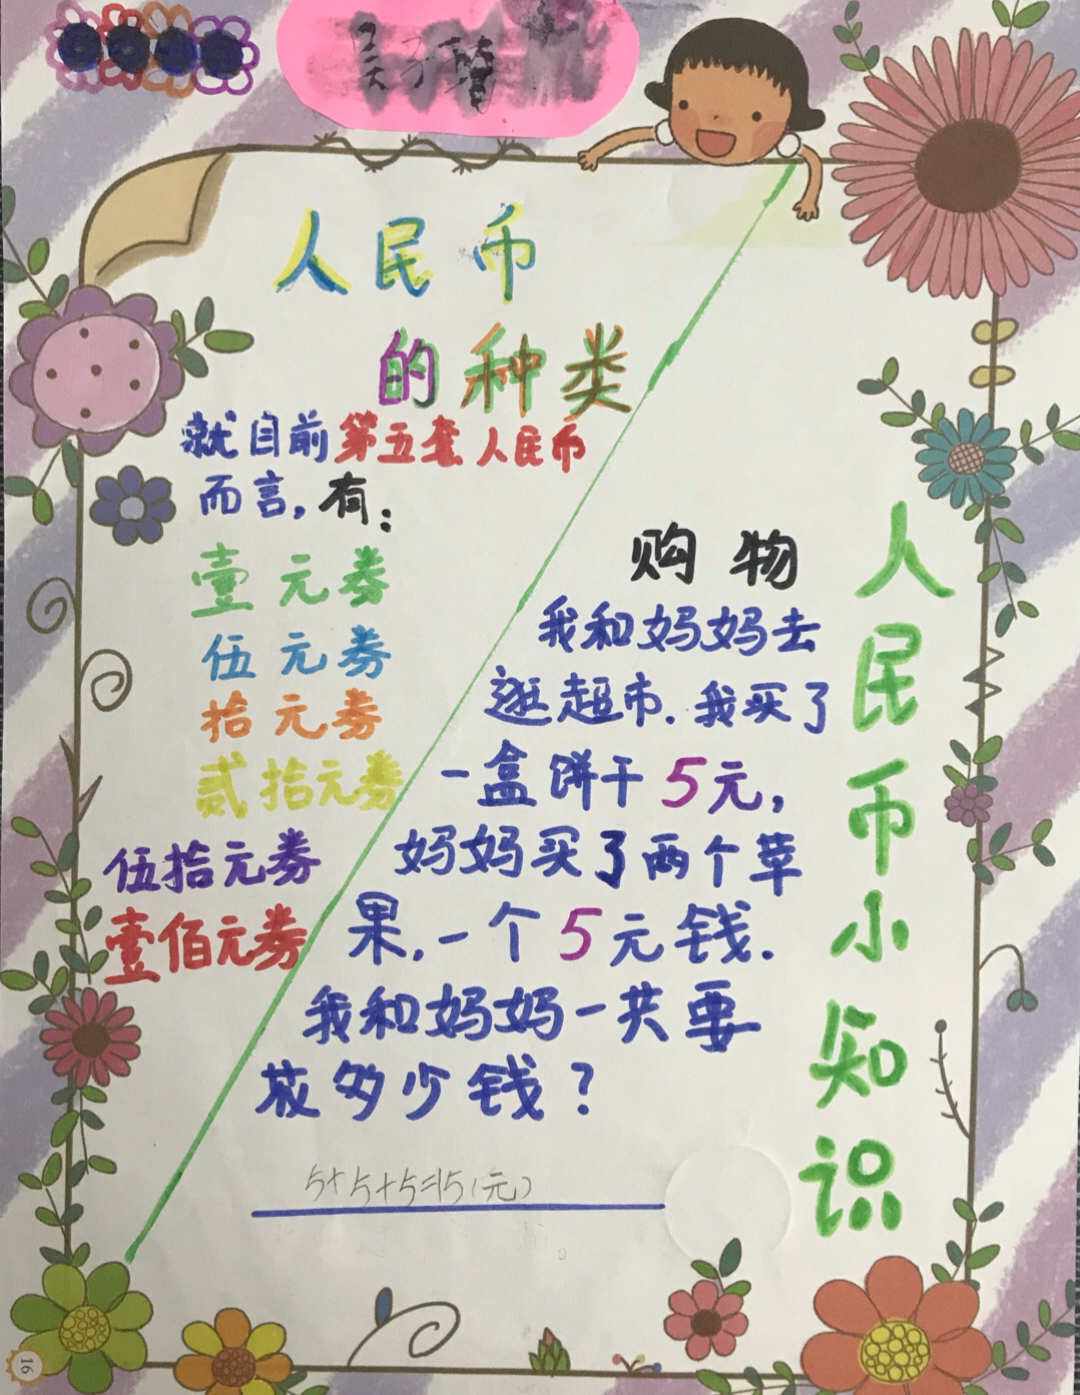 人民币
的种类
就目前第五套人民币
而言,有:
壹元券
伍元券
拾元券
贰拾元券
伍拾元券
壹佰元券
人民币小知识
购物
我和妈妈去
逛超市.我买了
一盒饼干5元,
妈妈买了两个草
果,一个5元钱.
我和妈妈一共要
花多少钱?
5+5+5=15(元)
16